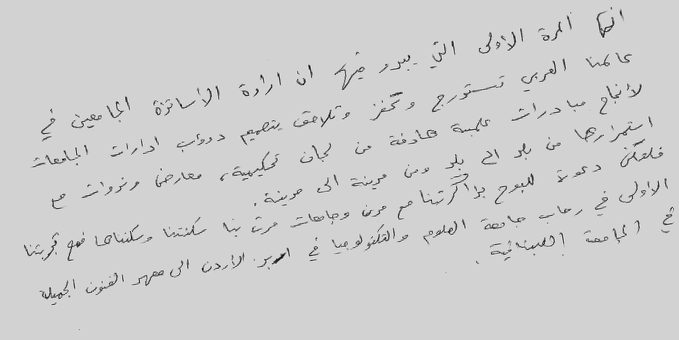 انها المرة الاولى التي يبدو فيها ان ارادة الاساتذة الجامعين في
عالمنا العربي تستدرج وتحفز وتلاحق بتصميم دؤوب ادارات الجامعات
لأنجاح مبادرات علمية هادفة من لجان تحكيمية، معارض وندوات مع
استمرارها من بلد الى بلد ومن مدينة الى مدينة.
فلتكن دعوة للبوح بذاكرتنا مع مدن وجامعات مرت بنا سكنتنا وسكناها فمع تجربتنا
الاولى في رحاب جامعة العلوم والتكنولوجيا في اربد الاردن الى معهد الفنون الجميلة
في الجامعة اللبنانية.